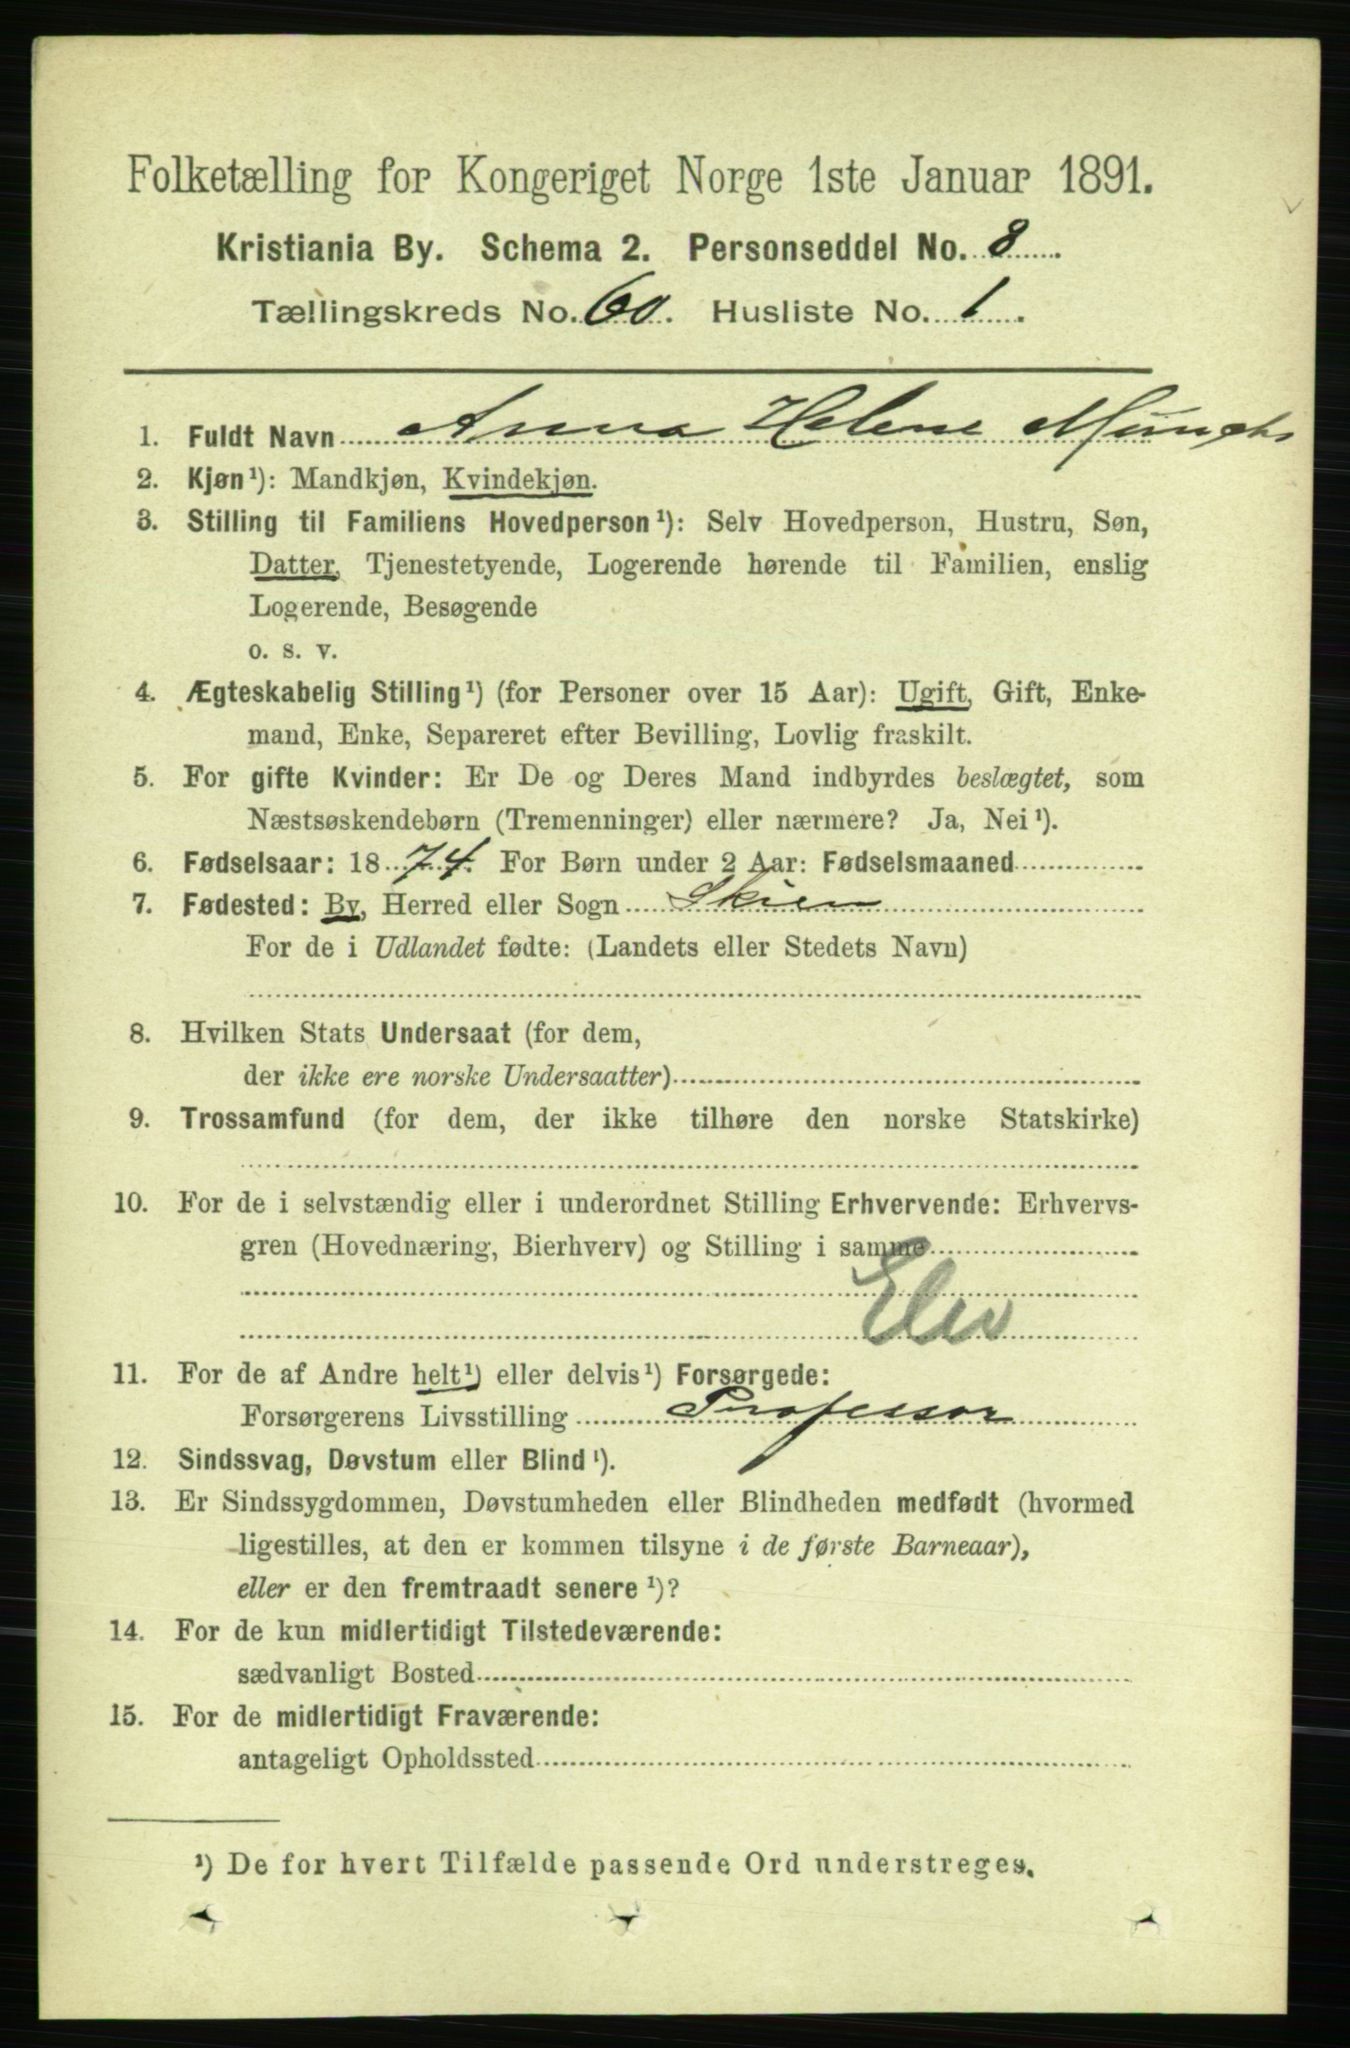 Folketælling for Kongeriget Norge 1ste Januar 1891.
Kristiania By. Schema 2. Personseddel No. 8.
Tællingskreds No. 60. Husliste No. 1.
1. Fuldt Navn Anna Helene Münch
2. Kjøn¹): Mandkjøn, Kvindekjøn.
3. Stilling til Familiens Hovedperson¹): Selv Hovedperson, Hustru, Søn,
Datter, Tjenestetyende, Logerende hørende til Familien, enslig
Logerende, Besøgende
o. s. v.
4. Ægteskabelig Stilling¹) (for Personer over 15 Aar): Ugift, Gift, Enke-
mand, Enke, Separeret efter Bevilling, Lovlig fraskilt.
5. For gifte Kvinder: Er De og Deres Mand indbyrdes beslægtet, som
Næstsøskendebørn (Tremenninger) eller nærmere? Ja, Nei¹).
6. Fødselsaar: 1874. For Børn under 2 Aar: Fødselsmaaned
7. Fødested: By, Herred eller Sogn Skien
For de i Udlandet fødte: (Landets eller Stedets Navn)
8. Hvilken Stats Undersaat (for dem,
der ikke ere norske Undersaatter)
9. Trossamfund (for dem, der ikke tilhøre den norske Statskirke)
10. For de i selvstændig eller i underordnet Stilling Erhvervende: Erhvervs-
gren (Hovednæring, Bierhverv) og Stilling i samme
Elev
11. For de af Andre helt¹) eller delvis¹) Forsørgede:
Forsørgerens Livsstilling Professor
12. Sindssvag, Døvstum eller Blind¹).
13. Er Sindssygdommen, Døvstumheden eller Blindheden medfødt (hvormed
ligestilles, at den er kommen tilsyne i de første Barneaar),
eller er den fremtraadt senere¹)?
14. For de kun midlertidigt Tilstedeværende:
sædvanligt Bosted
15. For de midlertidigt Fraværende:
antageligt Opholdssted
¹) De for hvert Tilfælde passende Ord understreges.